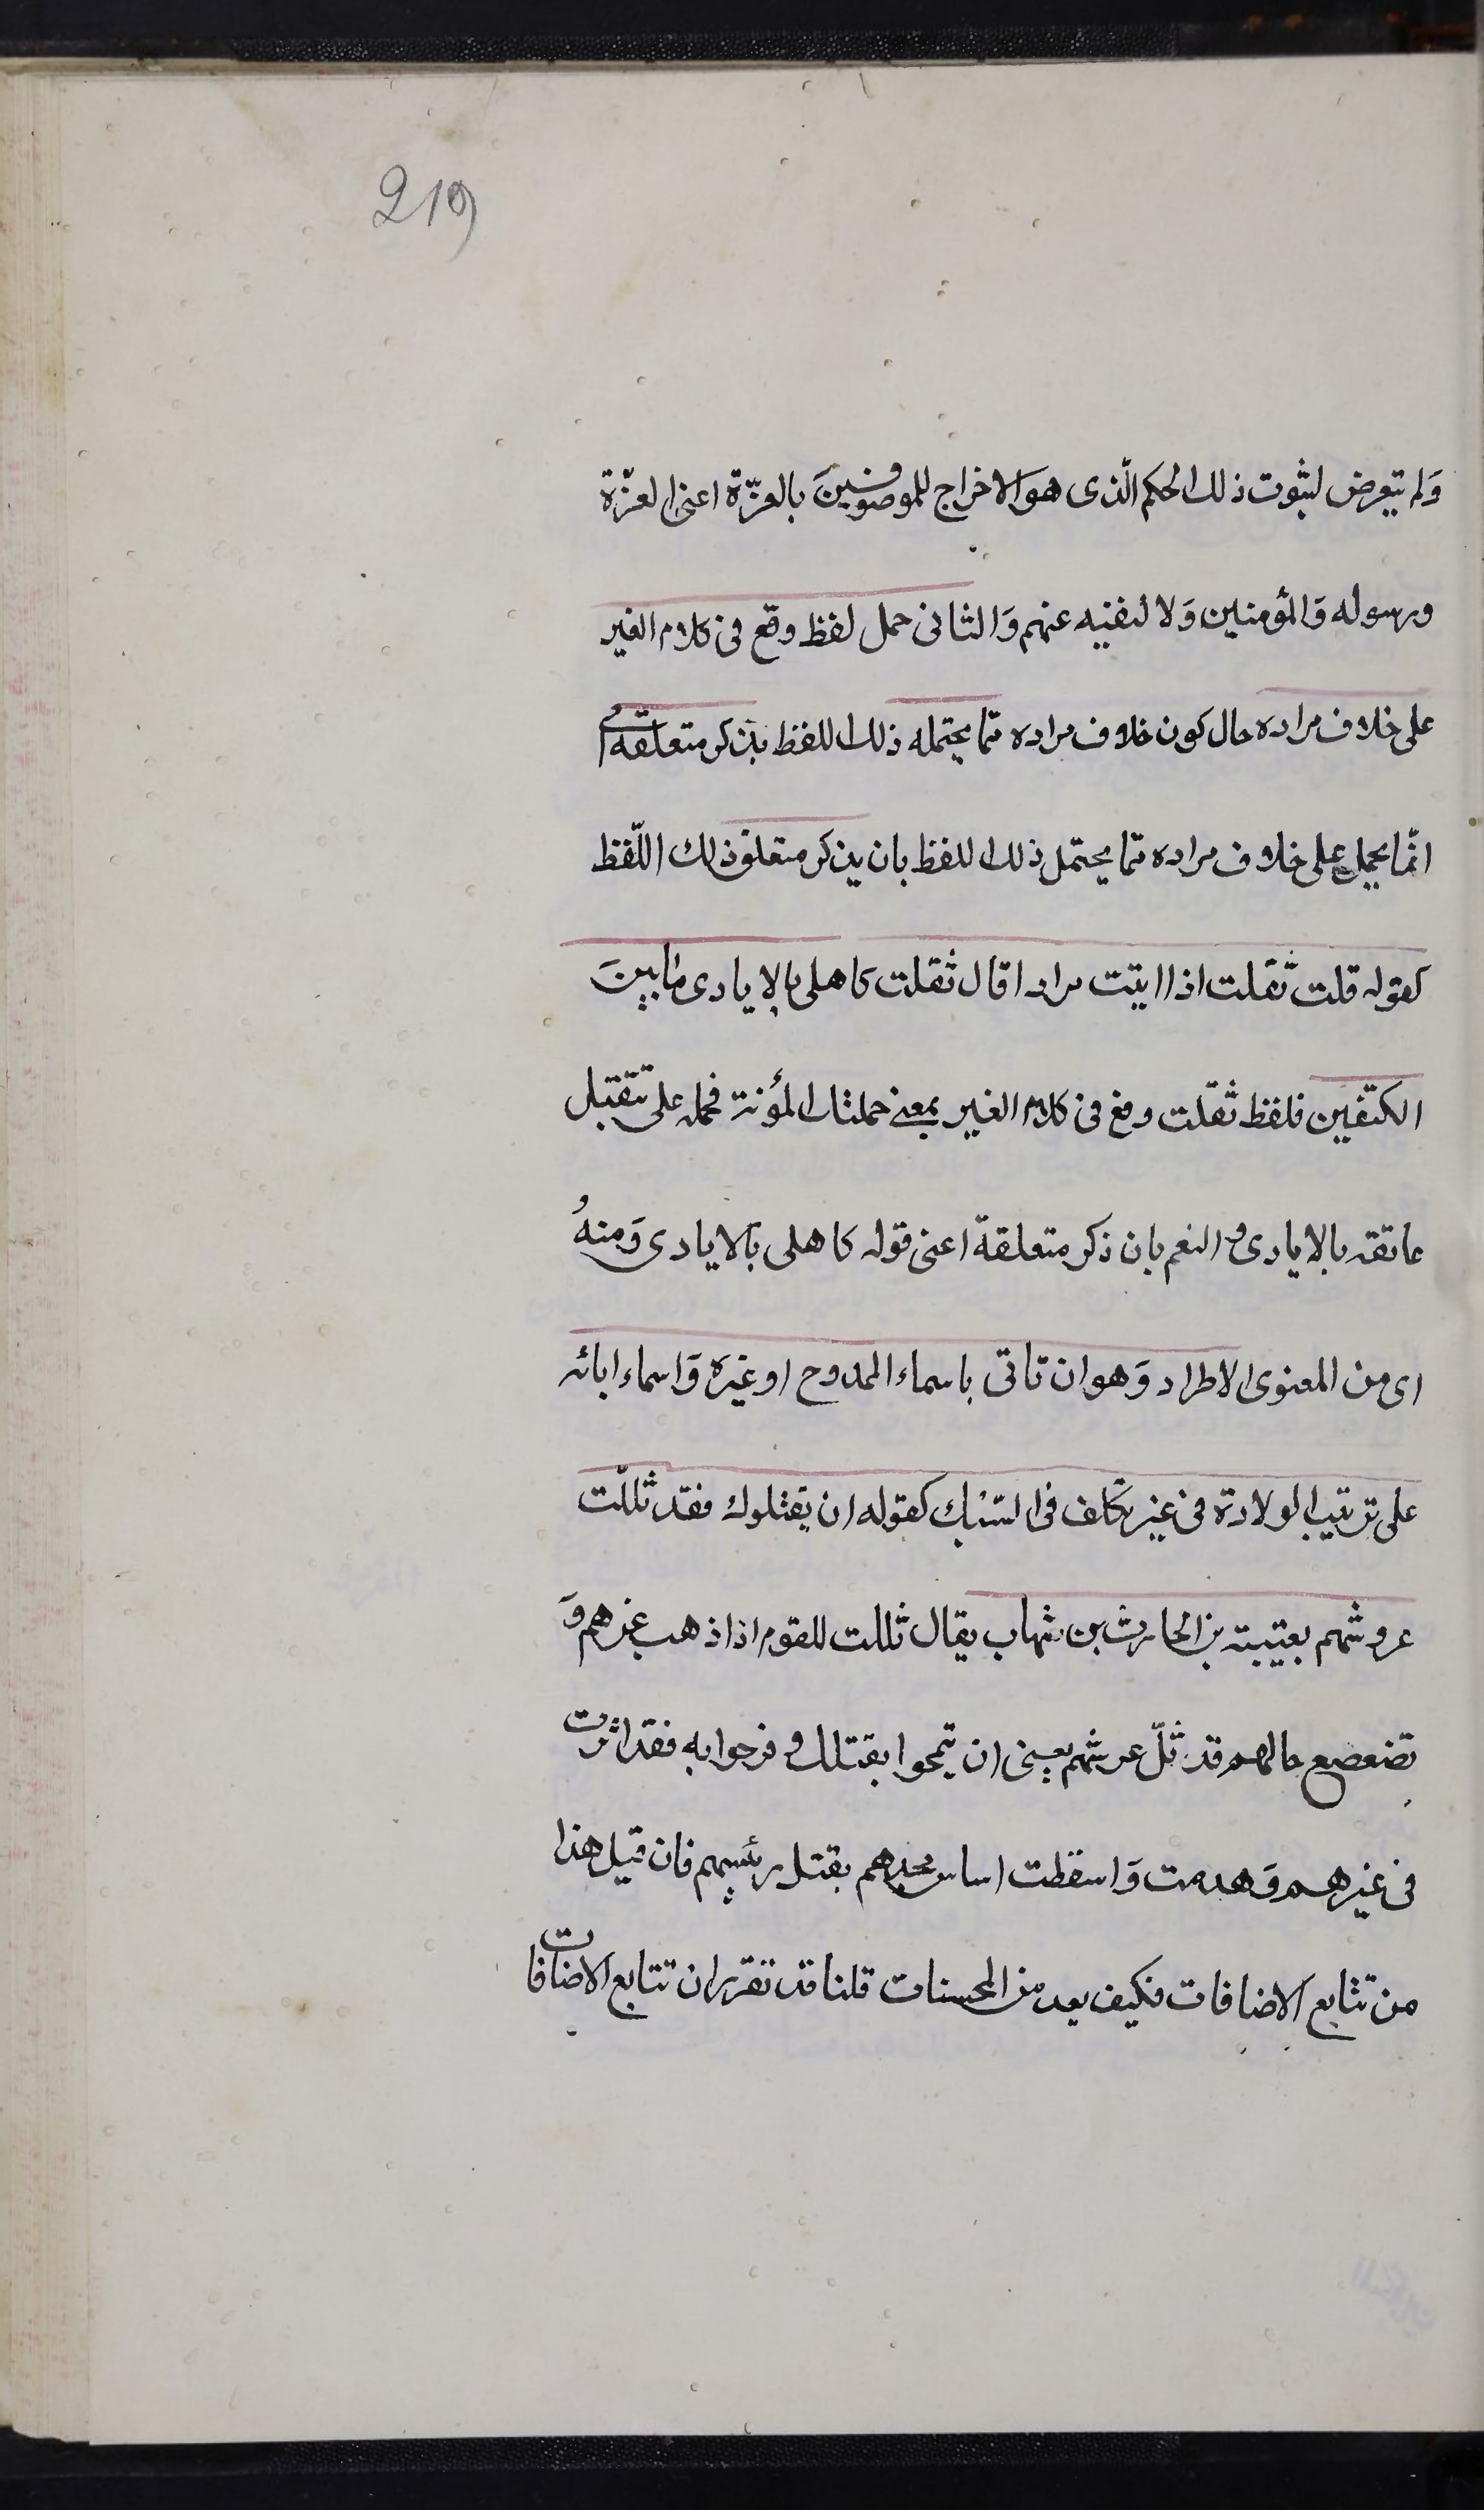 219
وَلم يتعرض لثبوت ذلك الحكم الّذى هو الاخراج للموصوفينَ بالعزّة اعنى العزّة
ورسوله وَالمؤمنين وَلا لنفيه عنهم وَالثانى حمل لفظ وقع فى كلام الغير
على خلاف مراده حال كون خلاف مراده ممّا يحتمله ذلك اللفظ بذكر متعلقه اى
انمّا يحمل على خلاف مراده ممّا يحتمل ذلك اللفظ بان يذكر متعلق ذلك اللّفظ
كقوله قلت ثقلت اذا اتيت مرارا قال ثقلت كاهلى بالايادى ما بينَ
الكتفين فلفظ ثقّلت وقع فى كلام الغير بمعنى حملتك المؤنة فحمله على تثقيل
عاتقه بالايادى و النعم بان ذكر متعلقة اعنى قوله كاهلى بالايادى وَمنهُ
اى من المعنوى الاطراد وَهو ان تاتى باسماء الممدوح او غيره وَاسماء ابائه
على ترتيب الولادة فى غير تكلف فى السّبك كقوله ان يقتلوك فقد ثللّت
عروشهم بعتيبة بن الحارث بن شهاب يقال ثللت للقوم اذا ذهب عزهم وَ
تضعضع حالهم قد ثلّ عرشهم يعنى ان تبجحوا بقتلك و فرحوا به فقد اثرت
فى عزهم وَهدمت وَاسقطت اساس مجدهم بقتل رئيسهم فان قيل هذا
من تتابع الاضافات فكيف يعد من المحسنات قلنا قد تقرر ان تتابع الاضافات